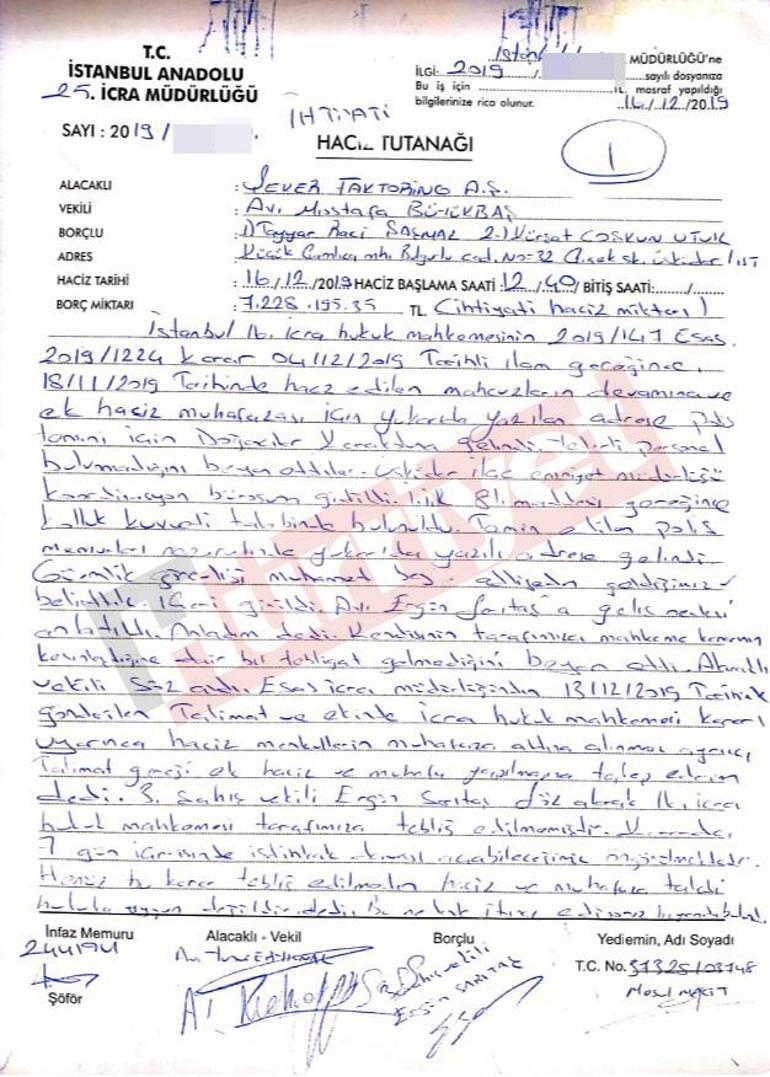 T.C.
İSTANBUL ANADOLU
25. İCRA MÜDÜRLÜĞÜ
SAYI : 2019 /
İstanbul MÜDÜRLÜĞÜ'ne
İLGİ: 2019 / sayılı dosyanıza
Bu iş için TL. masraf yapıldığı
bilgilerinize rica olunur. 16 / 12 / 2019
İHTİYATİ
HACİZ TUTANAĞI
1
ALACAKLI : ŞEKER FAKTORİNG A.Ş.
VEKİLİ : Av. Mustafa
BORÇLU : 1) Tayyar Raci ŞAŞMAZ 2-) Kürşat COŞKUN UTUK
ADRES : Küçük Çamlıca mh. Bulgurlu cad. No=32 sk. Üsküdar / İST
HACİZ TARİHİ : 16 / 12 / 2019 HACİZ BAŞLAMA SAATİ : 12 / 40 / BİTİŞ SAATİ: / /
BORÇ MİKTARI : 7.228.195.35 TL. (ihtiyati haciz miktarı)
İstanbul 16. icra hukuk mahkemesinin 2019/147 Esas.
2019/1224 karar 04/12/2019 Tarihli ilam gereğince,
18/11/2019 Tarihinde haciz edilen mahcuzların devamına ve
ek haciz muhafazası için yukarıda yazılan adrese polis
temini için Doğancılar Karakoluna gelindi. Yeterli personel
bulunmadığını beyan ettiler. Üsküdar ilçe emniyet müdürlüğü
koordinasyon bürosuna gidildi. İİK 81. maddesi gereğince
kolluk kuvveti talebinde bulunuldu. Temin edilen polis
memurları nezaretinde yukarıda yazılı adrese gelindi.
Güvenlik görevlisi muhamet bey geldiğimizi
belirttik. İçeri girildi. Av. Ergin Sarıtaş'a geliş nedeni
anlatıldı. Anladım dedi. Kendisinin tarafımıza mahkeme kararının
kesinleştiğine dair bir tebliğat gelmediğini beyan etti. Alacaklı
vekili Söz aldı. Esas icra müdürlüğünden 13/12/2019 Tarihinde
gönderilen Talimat ve ekinde icra hukuk mahkemesi kararı
uyarınca haciz menkullerin muhafaza altına alınması ayrıca,
Talimat gereği ek haciz ve muhafaza yapılmasını talep ederim
dedi. 3. şahıs vekili Ergin Sarıtaş Söz alarak icra
hukuk mahkemesi tarafımıza tebliğ edilmemiştir. Kararda,
7 gün içerisinde istihkak davası açabileceğimiz öngörülmektedir.
Henüz bu karar tebliğ edilmeden haciz ve muhafaza talebi
hukuka uygun değildir dedi.
İnfaz Memuru Alacaklı - Vekil Borçlu Yediemin, Adı Soyadı
244194
T.C. No.
Şöför
3. Şahıs vekili
Ergin SARITAŞ
Hürriyet